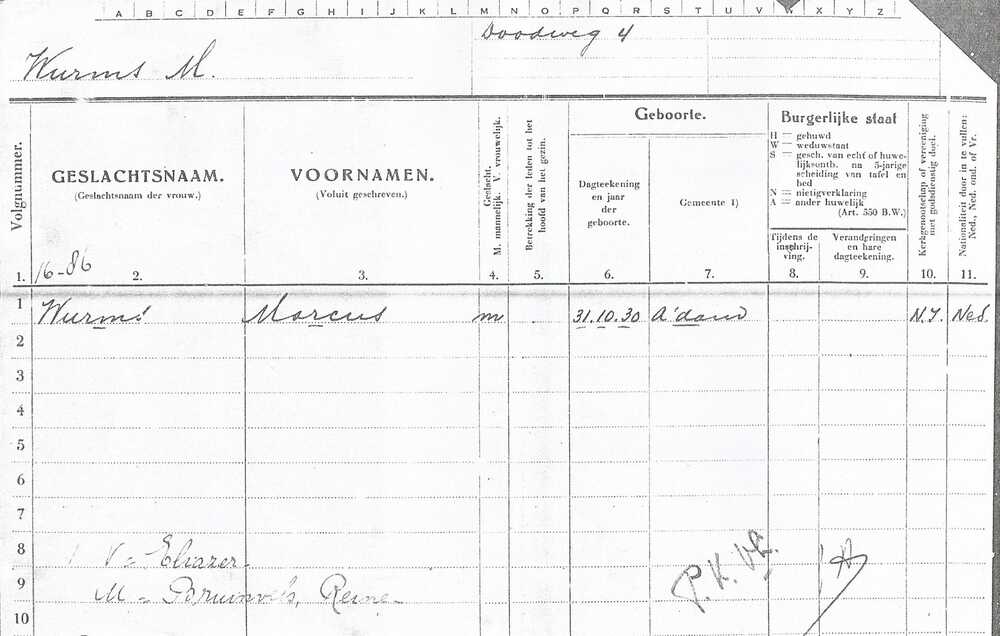 A B C D E F G H I J K L M N O P Q R S T U V W X Y Z
Doodweg 4
Wurms M.
Volgnummer.
GESLACHTSNAAM.
(Geslachtsnaam der vrouw.)
VOORNAMEN.
(Voluit geschreven.)
Geslacht.
M. mannelijk. V. vrouwelijk.
Betrekking der leden tot het
hoofd van het gezin.
Geboorte.
Dagteekening
en jaar
der
geboorte.
Gemeente 1)
Burgerlijke staat
H = gehuwd
W = weduwstaat
S = gesch. van echt of huwe-
lijksontb. na 5-jarige
scheiding van tafel en
bed
N = nietigverklaring
A = ander huwelijk
(Art. 550 B.W.)
Tijdens de
inschrij-
ving.
Veranderingen
en hare
dagteekening.
Kerkgenootschap of vereeniging
met godsdienstig doel.
Nationaliteit door in te vullen:
Ned., Ned. ond. of Vr.
1. 2. 3. 4. 5. 6. 7. 8. 9. 10. 11.
16-86
1 Wurms Marcus m 31.10.30 A'dam N.I. Ned.
2
3
4
5
6
7
8 V = Eliazer
9 M = Bruinvels, Reine
P.K.
10